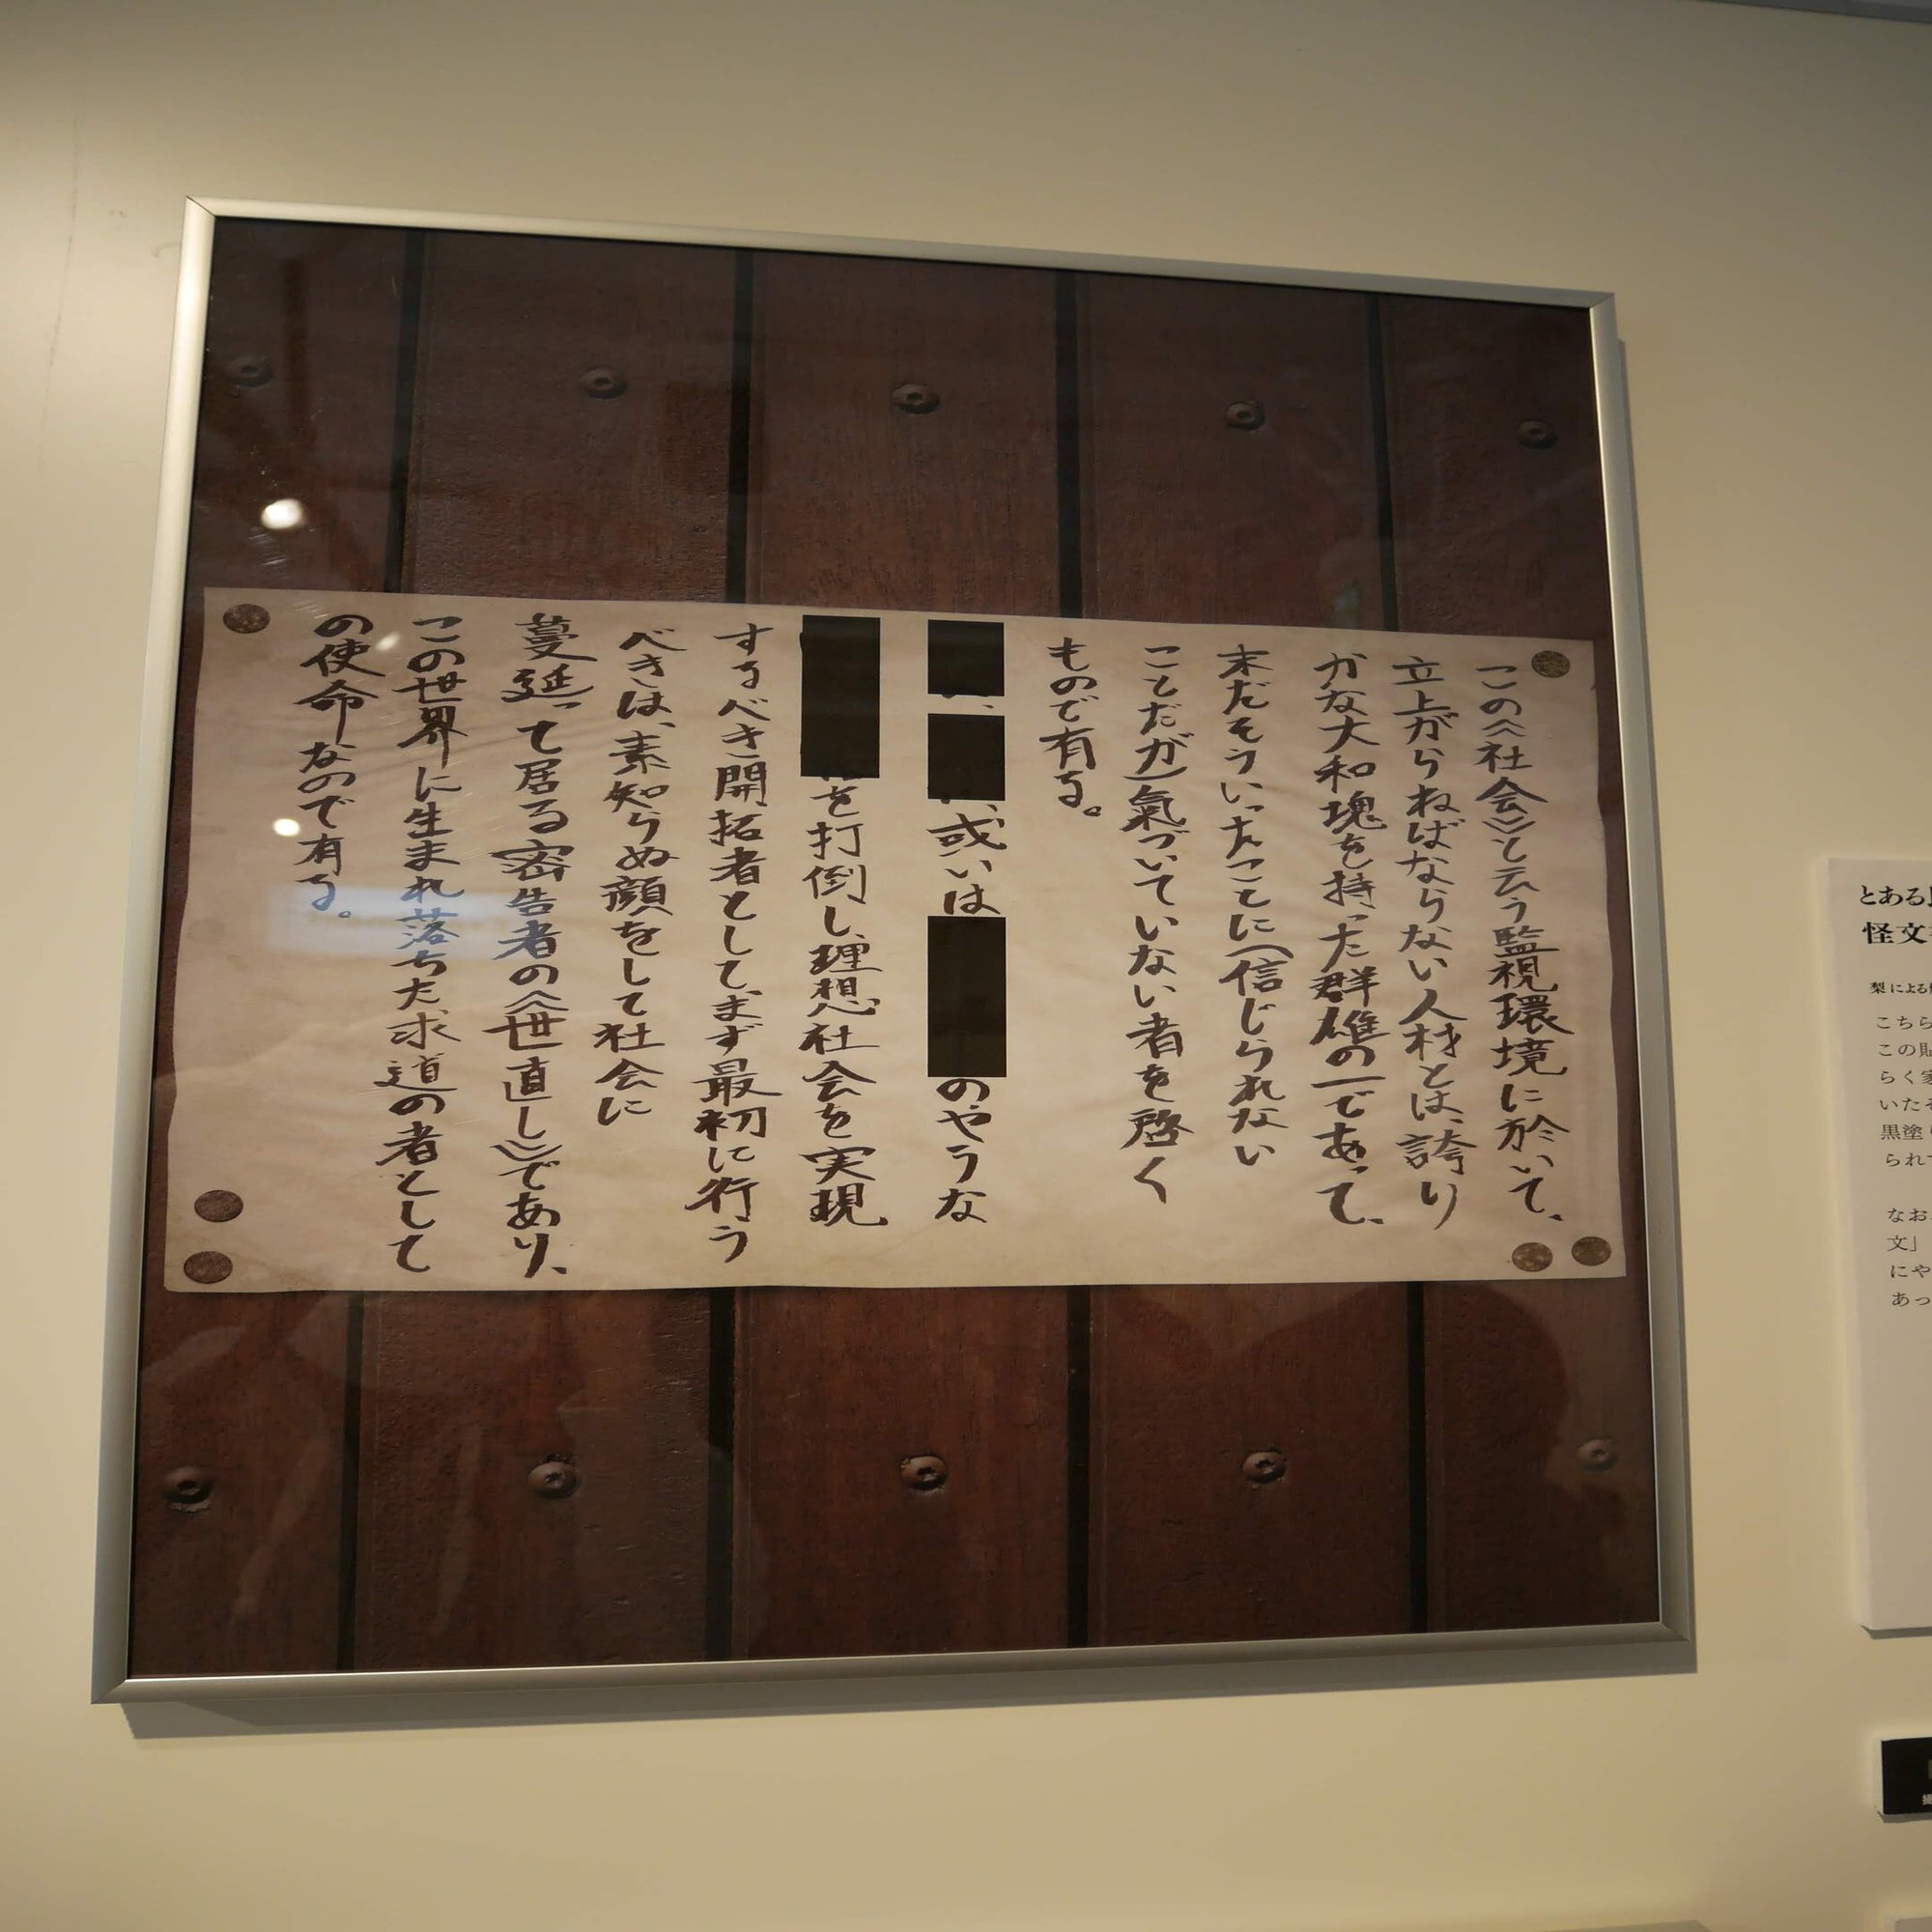 この《社会》と云う監視環境に於いて、
立上がらねばならない人材とは、誇り
かな大和塊を持った群雄の一であって、
末だそういったことに(信じられない
ことだが)氣づいていない者を啓く
もので有る。
、或いは
のやうな
を打倒し、理想社会を実現
するべき開拓者として、まず最初に行う
べきは、素知らぬ顔をして社会に
蔓延って居る密告者の《世直し》であり、
この世界に生まれ落ちた求道の者として
の使命なので有る。
とある
怪文
梨による
こちら
この貼
らく家
いたそ
黒塗り
られて
なお、
文」
にや
あっ